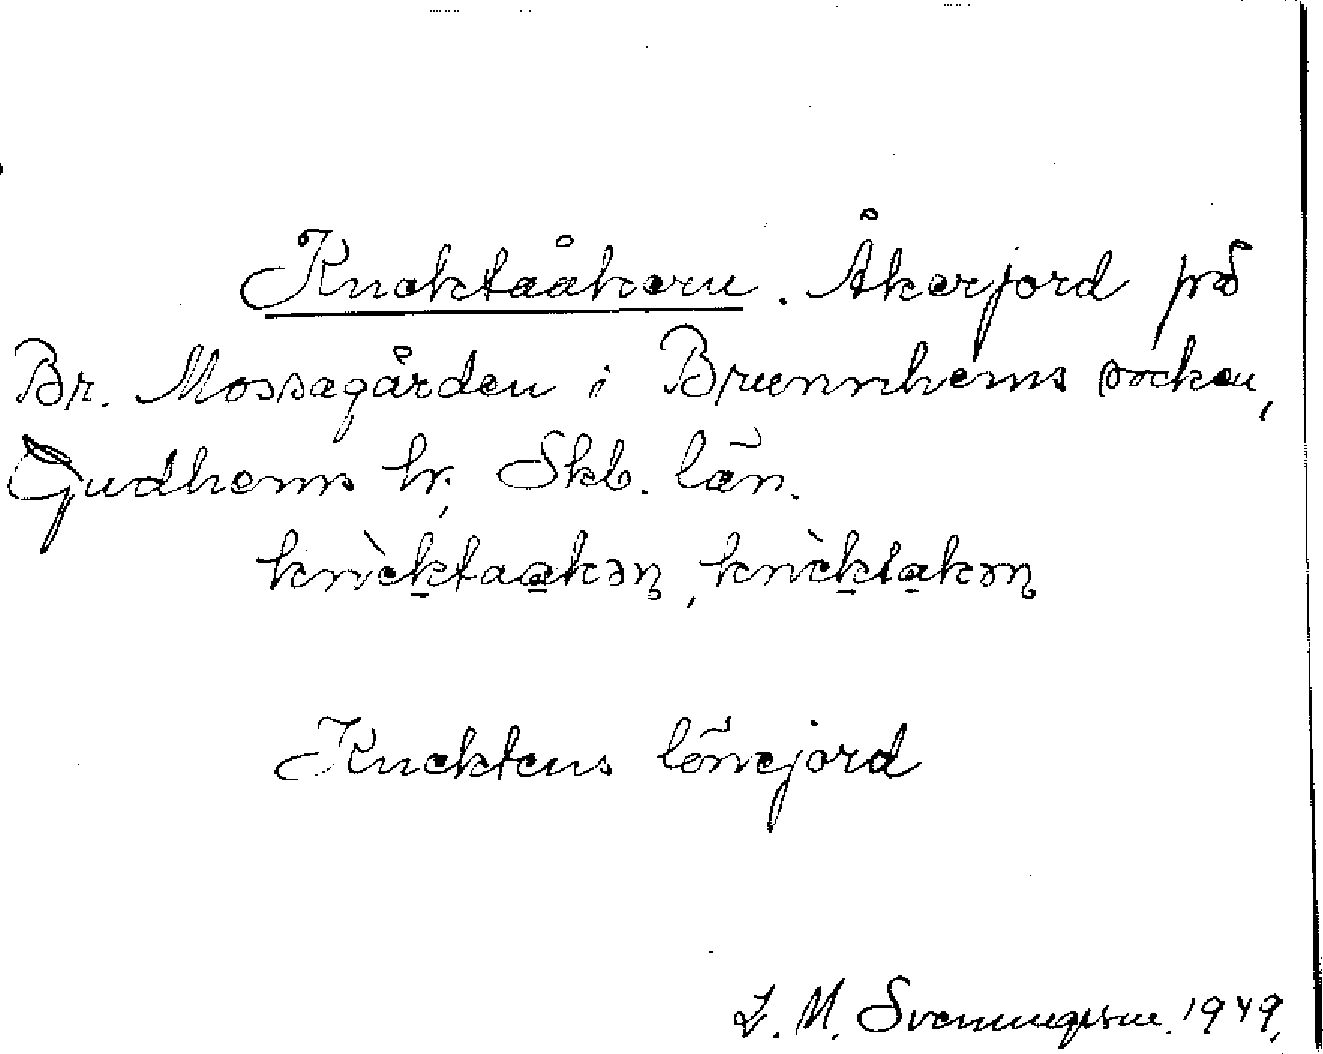 Knektaåkern. Åkerjord på
Br. Mossagården i Brunnhems socken,
Gudhems hr, Skb. län.
knìcktaakəɳ, knìcktakəɳ
Knektens lönejord
L. M. Svenungsson. 1949.